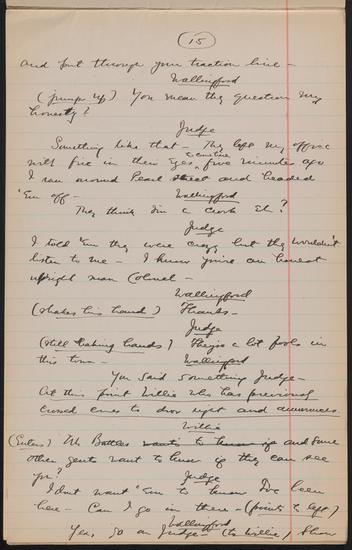 15
and put through your traction line -
Wallingford
(jumps up) You mean they question my
honesty?
Judge
Something like that - They left my office
with fire in their eyes, five minutes ago
I ran around Pearl street and headed
'Em off -
Wallingford
They think I'm a crook Eh?
Judge
I told 'Em they were crazy but they wouldn't
listen to me - I know you're an honest
upright man Colonel -
Wallingford
(shakes his hand) Thanks -
Judge
(still shaking hands) They's a lot fools in
this town -
Wallingford
You said something Judge -
At this point Willie who has previously
crossed over to door right and announces.
Willie
(Enters) Mr Battles wants to know if and some
other gents want to know if they can see
yu?
Judge
I don't want 'Em to know I've been
here - Can I go in there - (points to left)
Wallingford
Yes, go on Judge - (to Willie) Show